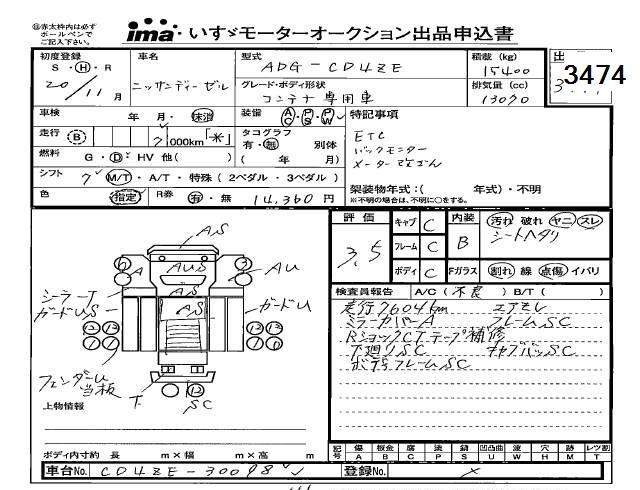 ⑱赤太枠内は必ず
ボールペンで
ご記入下さい。
ima いすゞモーターオークション出品申込書
初度登録
S・Ⓗ・R
20/11月
車名
ニッサンディーゼル
型式
ADG-CD4ZE
グレード・ボディ形状
コンテナ専用車
積載(kg)
15400
排気量(cc)
13070
出
3474
車検 年 月・抹消
装備 AC PS PW
特記事項
ETC
バックモニター
走行 Ⓑ 7,000km「米」
タコグラフ
有・無 別体
( 年 月)
燃料 G・Ⓓ・HV 他( )
シフト 7 M/T・A/T・特殊(2ペダル・3ペダル)
架装物年式:( 年式)・不明
※不明の場合は、不明に○をする。
色 指定 R券 有・無 14,360円
評価 3.5
キャブ C
フレーム C
ボディ C
内装 B
汚れ 破れ ヤニ スレ
シートヘタリ
Fガラス 割れ 線 点傷 イバリ
検査員報告 A/C(不良)B/T( )
走行7604km エアモレ
ミラーカバーA フレームSC
RショックCTテープ補修
下廻りSC キャブバックSC
ボディフレームSC
AS
A
AUS
AU
AS
シラーT
ガードUS
ガードU
フェンダーU
当板
下
SC
上物情報
ボディ内寸約 長 m×幅 m×高 m
記号 傷A 板金B 腐C 凹P 錆S 凹凸曲U 波W 穴H 跡M レツ割T
車台No. CD4ZE-30098
登録No.